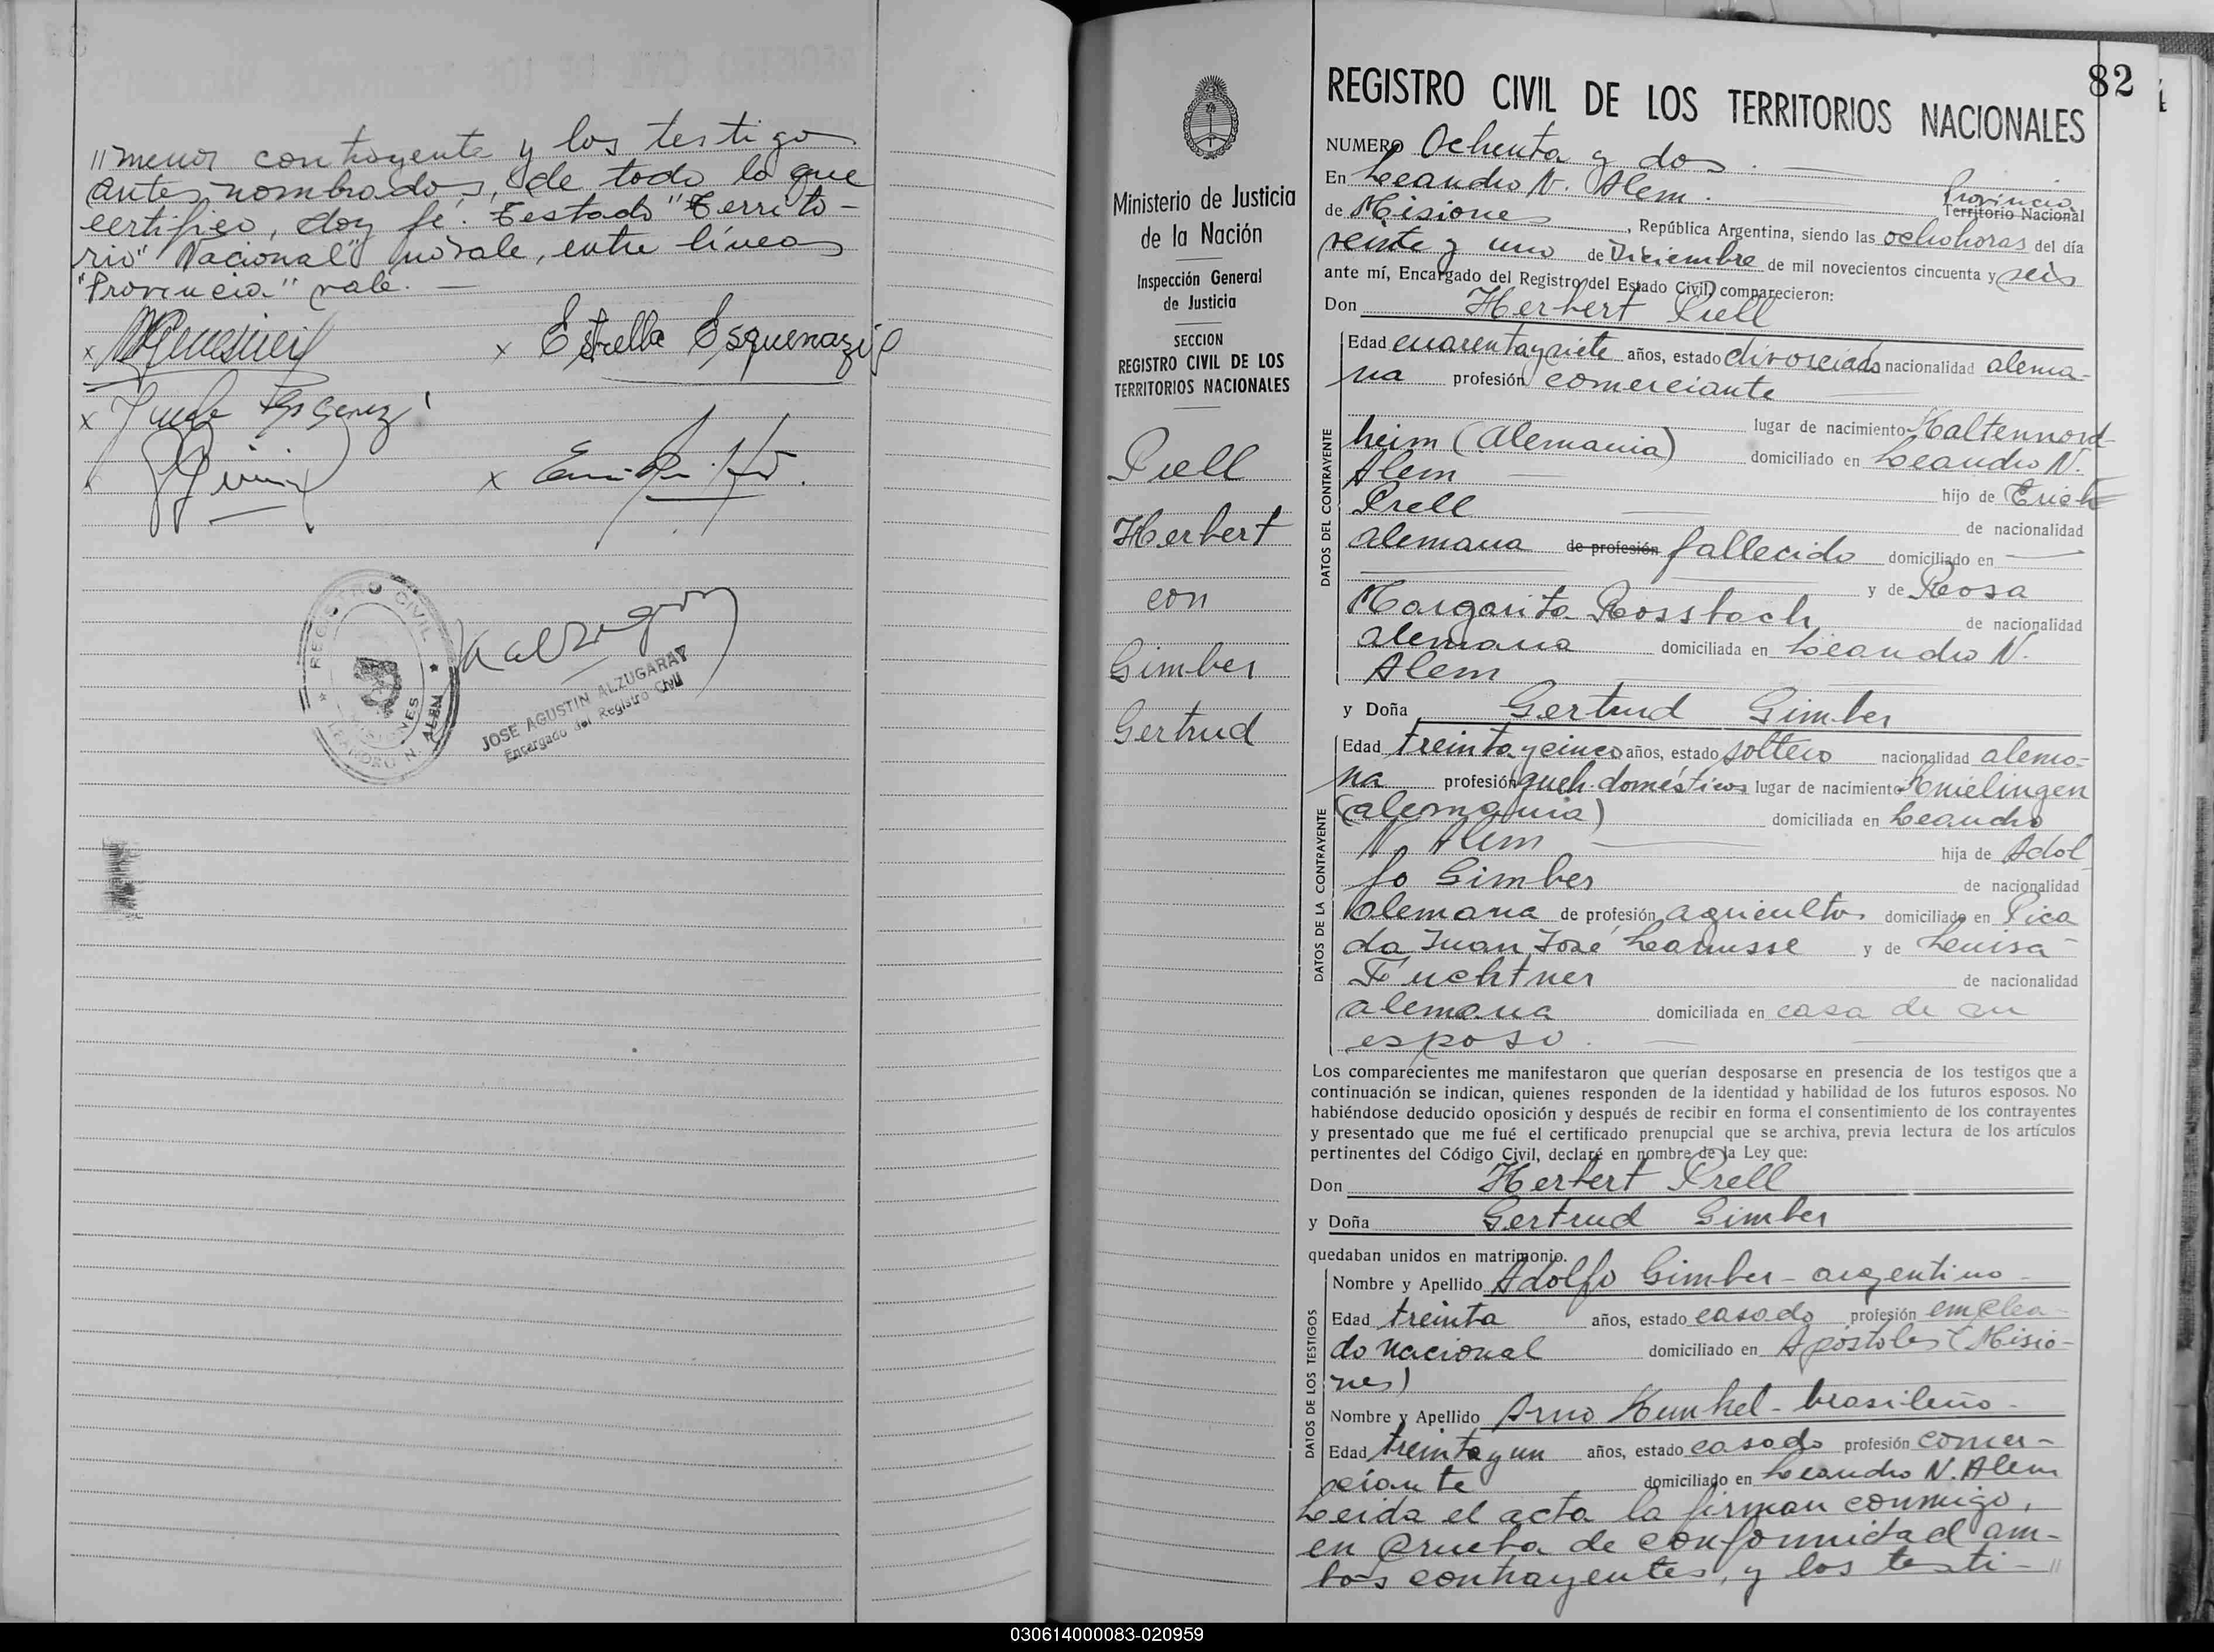 "menor contrayente y los testigos
antes nombrados, de todo lo que
certifico, doy fé. Testado "Territo-
rio" Nacional" no vale, entre líneas
"Provincia" vale. —
x
x Estrella Esquenazi
x
x
REGISTRO CIVIL
MISIONES
LEANDRO N. ALEM
JOSE AGUSTIN ALZUGARAY
Encargado del Registro Civil
Ministerio de Justicia
de la Nación
Inspección General
de Justicia
SECCION
REGISTRO CIVIL DE LOS
TERRITORIOS NACIONALES
Prell
Herbert
con
Gimber
Gertrud
82
REGISTRO CIVIL DE LOS TERRITORIOS NACIONALES
NUMERO Ochenta y dos. —
En Leandro N. Alem. — Provincia
Territorio Nacional
de Misiones, República Argentina, siendo las ocho horas del día
veinte y uno de Diciembre de mil novecientos cincuenta y seis
ante mí, Encargado del Registro del Estado Civil, comparecieron:
Don Herbert Prell
DATOS DEL CONTRAYENTE
Edad cuarenta y siete años, estado divorciado nacionalidad alema-
na profesión comerciante —
lugar de nacimiento Kaltennord-
heim (Alemania) domiciliado en Leandro N.
Alem — hijo de Erich
Prell — de nacionalidad
alemana de profesión fallecido domiciliado en —
— y de Rosa
Margarita Rossbach de nacionalidad
alemana domiciliada en Leandro N.
Alem
y Doña Gertrud Gimber
DATOS DE LA CONTRAYENTE
Edad treinta y cinco años, estado soltera nacionalidad alema-
na profesión queh. domésticos lugar de nacimiento Knielingen
(alemania) domiciliada en Leandro
N. Alem — hija de Adol
fo Gimber de nacionalidad
alemana de profesión agricultor domiciliado en Pica
da Juan José Lanusse y de Luisa
Füchtner de nacionalidad
alemana domiciliada en casa de su
esposo. —
Los comparecientes me manifestaron que querían desposarse en presencia de los testigos que a
continuación se indican, quienes responden de la identidad y habilidad de los futuros esposos. No
habiéndose deducido oposición y después de recibir en forma el consentimiento de los contrayentes
y presentado que me fué el certificado prenupcial que se archiva, previa lectura de los artículos
pertinentes del Código Civil, declaré en nombre de la Ley que:
Don Herbert Prell
y Doña Gertrud Gimber
quedaban unidos en matrimonio.
DATOS DE LOS TESTIGOS
Nombre y Apellido Adolfo Gimber - argentino -
Edad treinta años, estado casado profesión emplea-
do nacional domiciliado en Apóstoles (Misio-
nes)
Nombre y Apellido Arno Kunkel - brasileño -
Edad treinta y un años, estado casado profesión comer-
ciante domiciliado en Leandro N. Alem
Leida el acta la firman conmigo,
en prueba de conformidad am-
bos contrayentes, y los testi- //
030614000083-020959